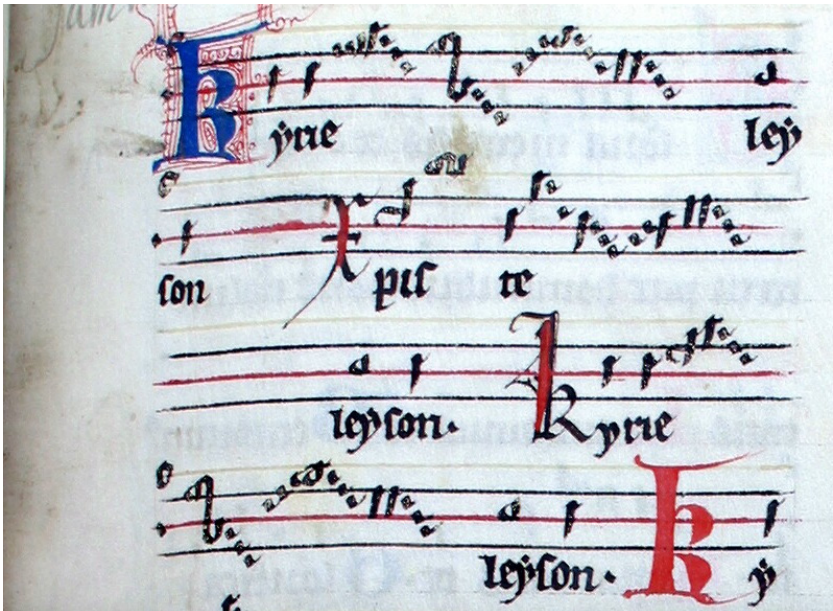 Kÿrie leÿ
son Xpiste
leyson. Kyrie
leÿson. Kÿ